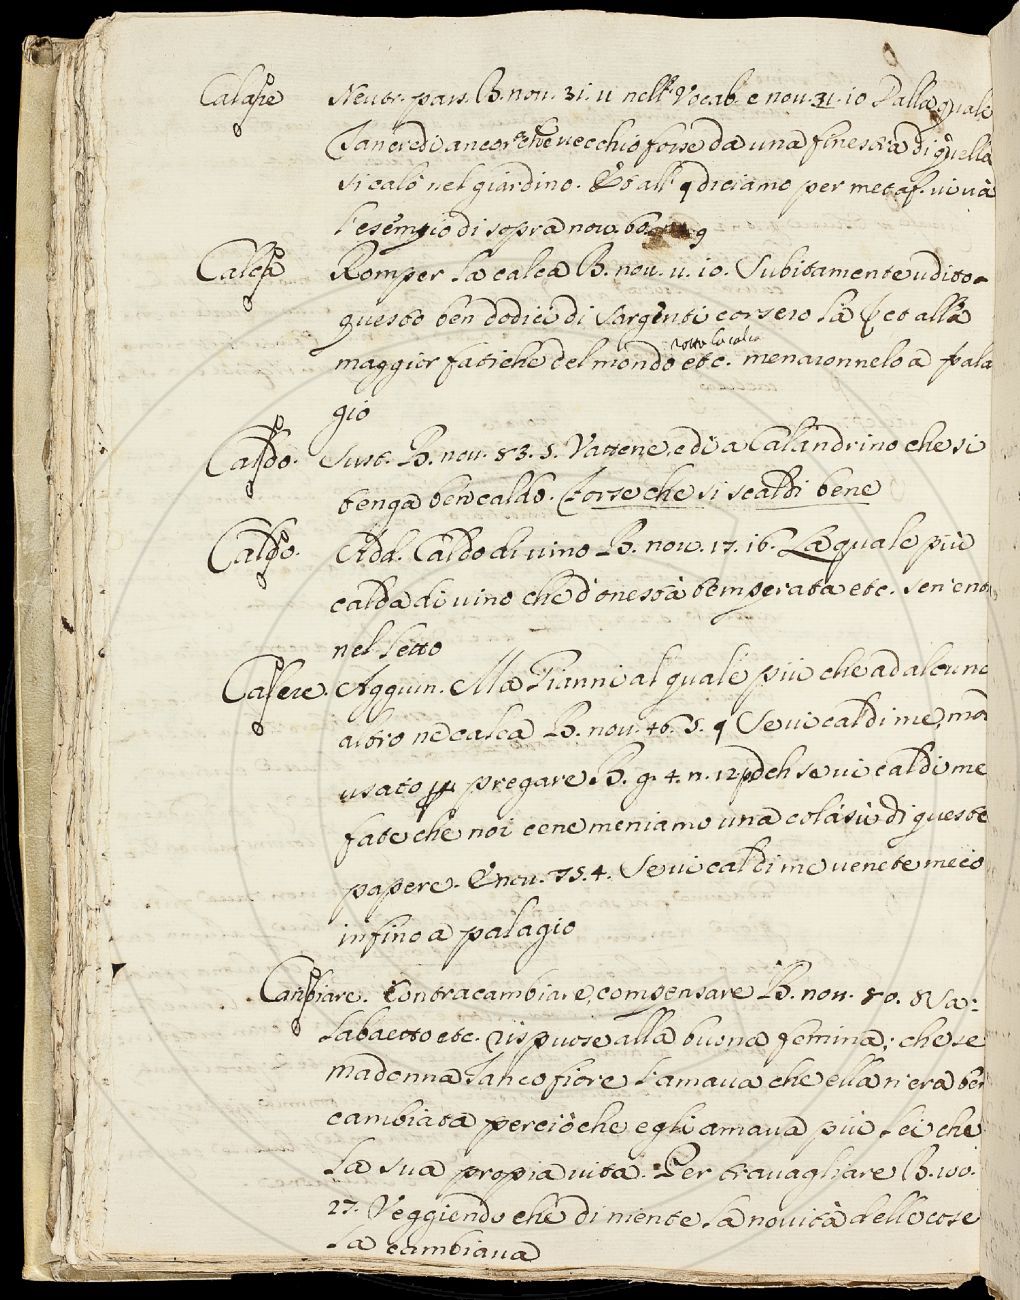 Calare Neutr. pass. B. nov. 31. 11 nell' Vocab. e nov. 31. 10 Dalla quale
Tancredi ancorche vecchio forse da una finestra di quella
si calò nel giardino. Et all' q diciamo per metaf. vi và
l'esempio di sopra nov. 60. 9
Calca Romper la calca B. nov. 11. 10. Subitamente udito
questo ben dodici di Sargenti corsero là et alla
maggior fatiche del mondo etc. rotta la calca menaronnelo a pala
gio
Caldo. Sust. B. nov. 83. 5. Vattene, e di a Calandrino che si
tenga ben caldo. Forse che si scaldi bene
Caldo. Add. Caldo di vino B. nov. 17. 16. La quale più
calda di vino che d'onestà temperata etc. sen'entr
nel letto
Calere. Aggiun. Ma Gianni al quale più che ad alcuno
altro ne calea B. nov. 46. 5. q Se vi cal di me, mod
usato p pregare B. g. 4. n. 12 deh se vi cal di me
fate che noi cene meniamo una colà sù di queste
papere. E nov. 75. 4. Se vi cal di me venite meco
infino a palagio
Cambiare. Contracambiare, compensare B. nov. 80. 8 Sa:
labaetto etc. rispuose alla buona femina; che se
madonna Jancofiore l'amava che ella n'era ben
cambiata perciòche egli amava più lei che
la sua propia vita. Per travagliare B. 100.
27. Veggiendo che di niente la novità delle cose
la cambiava